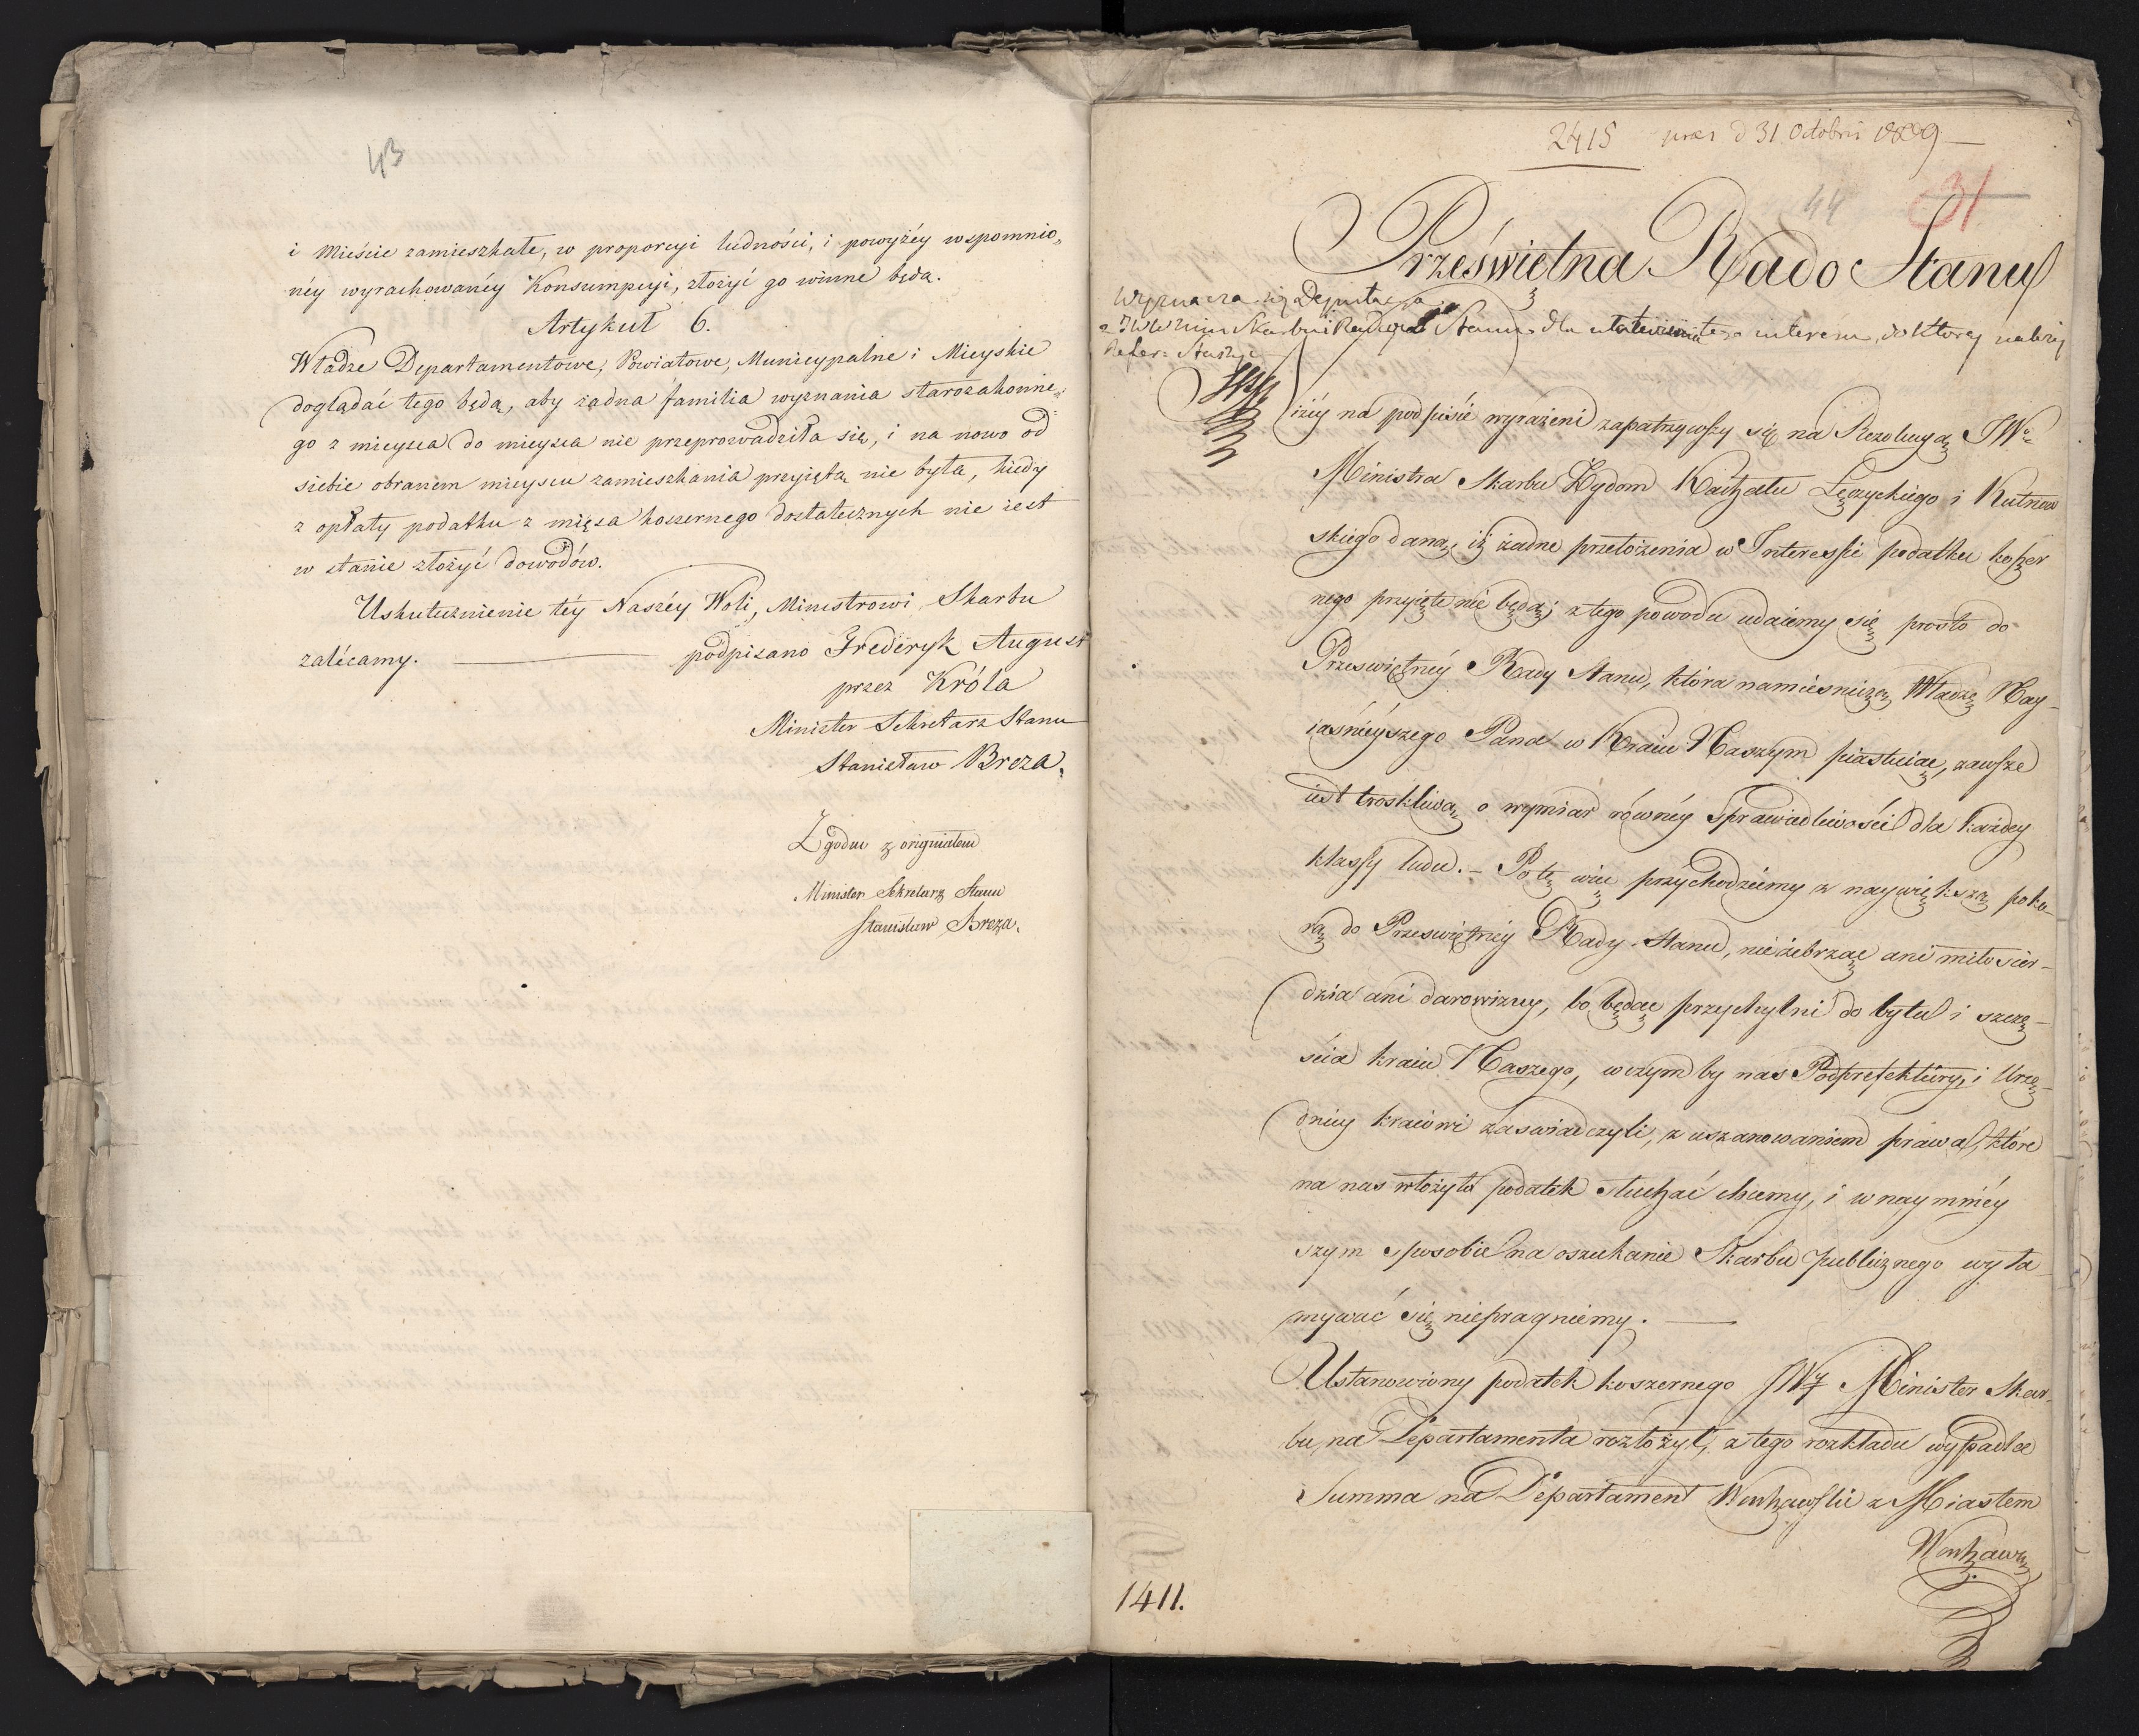 43
i Mieście zamieszkałe, w proporcyi ludności, i powyżéy wspomnio„
néy wyrachowanéy Konsumpcyi, złożyć go winne będą.
Artykuł 6.
Władze Departamentowe, Powiatowe, Municypalne i Mieyskie
doglądać tego będą, aby żadna familia wyznania starozakonne„
go z mieysca do mieysca nie przeprowadziła się, i na nowo od
siebie obranem mieyscu zamieszkania przyiętą nie była, kiedy
z opłaty podatku z mięsa koszernego dostatecznych nie iest
w stanie złożyć dowodów.
Uskutecznienie téy Naszéy Woli, Ministrowi Skarbu
zalécamy. — podpisano Frederyk August
przez Króla
Minister Sekretarz Stanu
Stanisław Breza.
Zgodno z originałem
Minister Sekretarz Stanu
Stanisław Breza.
2415 praes d 31 Octobris 1809 —
44 31
Prześwietna Rado Stanu
Wyznacza się Deputacya
z Skarbu i Stanu dla ułatwienia tego interesu, do którey należy
Refer: Staszyc
Niżéy na podpisie wyrażeni zapatrzywszy się na Rezolucyą JWo
Ministra Skarbu Żydom Kachału Łęczyckiego i Kutnow
skiego daną, iż żadne przełożenia w Interessie podatku koszer
nego przyięte nie będą; z tego powodu udaiemy się prosto do
Prześwietnéy Rady Stanu, która namiesniczą Władzę Nay-
iaśnieyszego Pana w Kraiu Naszym piastuiąc, zawsze
iest troskliwą o wymiar równéy Sprawiedliwości dla każdey
klassy ludu. – Po tę więc przychodziemy z naywiększą poko-
rą do Prześwietnéy Rady Stanu, nie żebrząc ani miłosier-
dzia ani darowizny, bo będąc przychylni do bytu i szczę-
ścia kraiu Naszego, w czym by nas Podprefektury, i Urzę-
dnicy kraiowi zaswiadczyli, z uszanowaniem prawa, które
na nas włożyło podatek słuchać chcemy, i w naymniéy
szym sposobie na oszukanie Skarbu publicznego wyła-
mywać się niepragniemy. —
Ustanowiony podatek koszernego JWy Minister Skar-
bu, na Departamenta rozłożył, z tego rozkładu wypadła
Summa na Departament Warszawski z Miastem
Warszawą
1411.